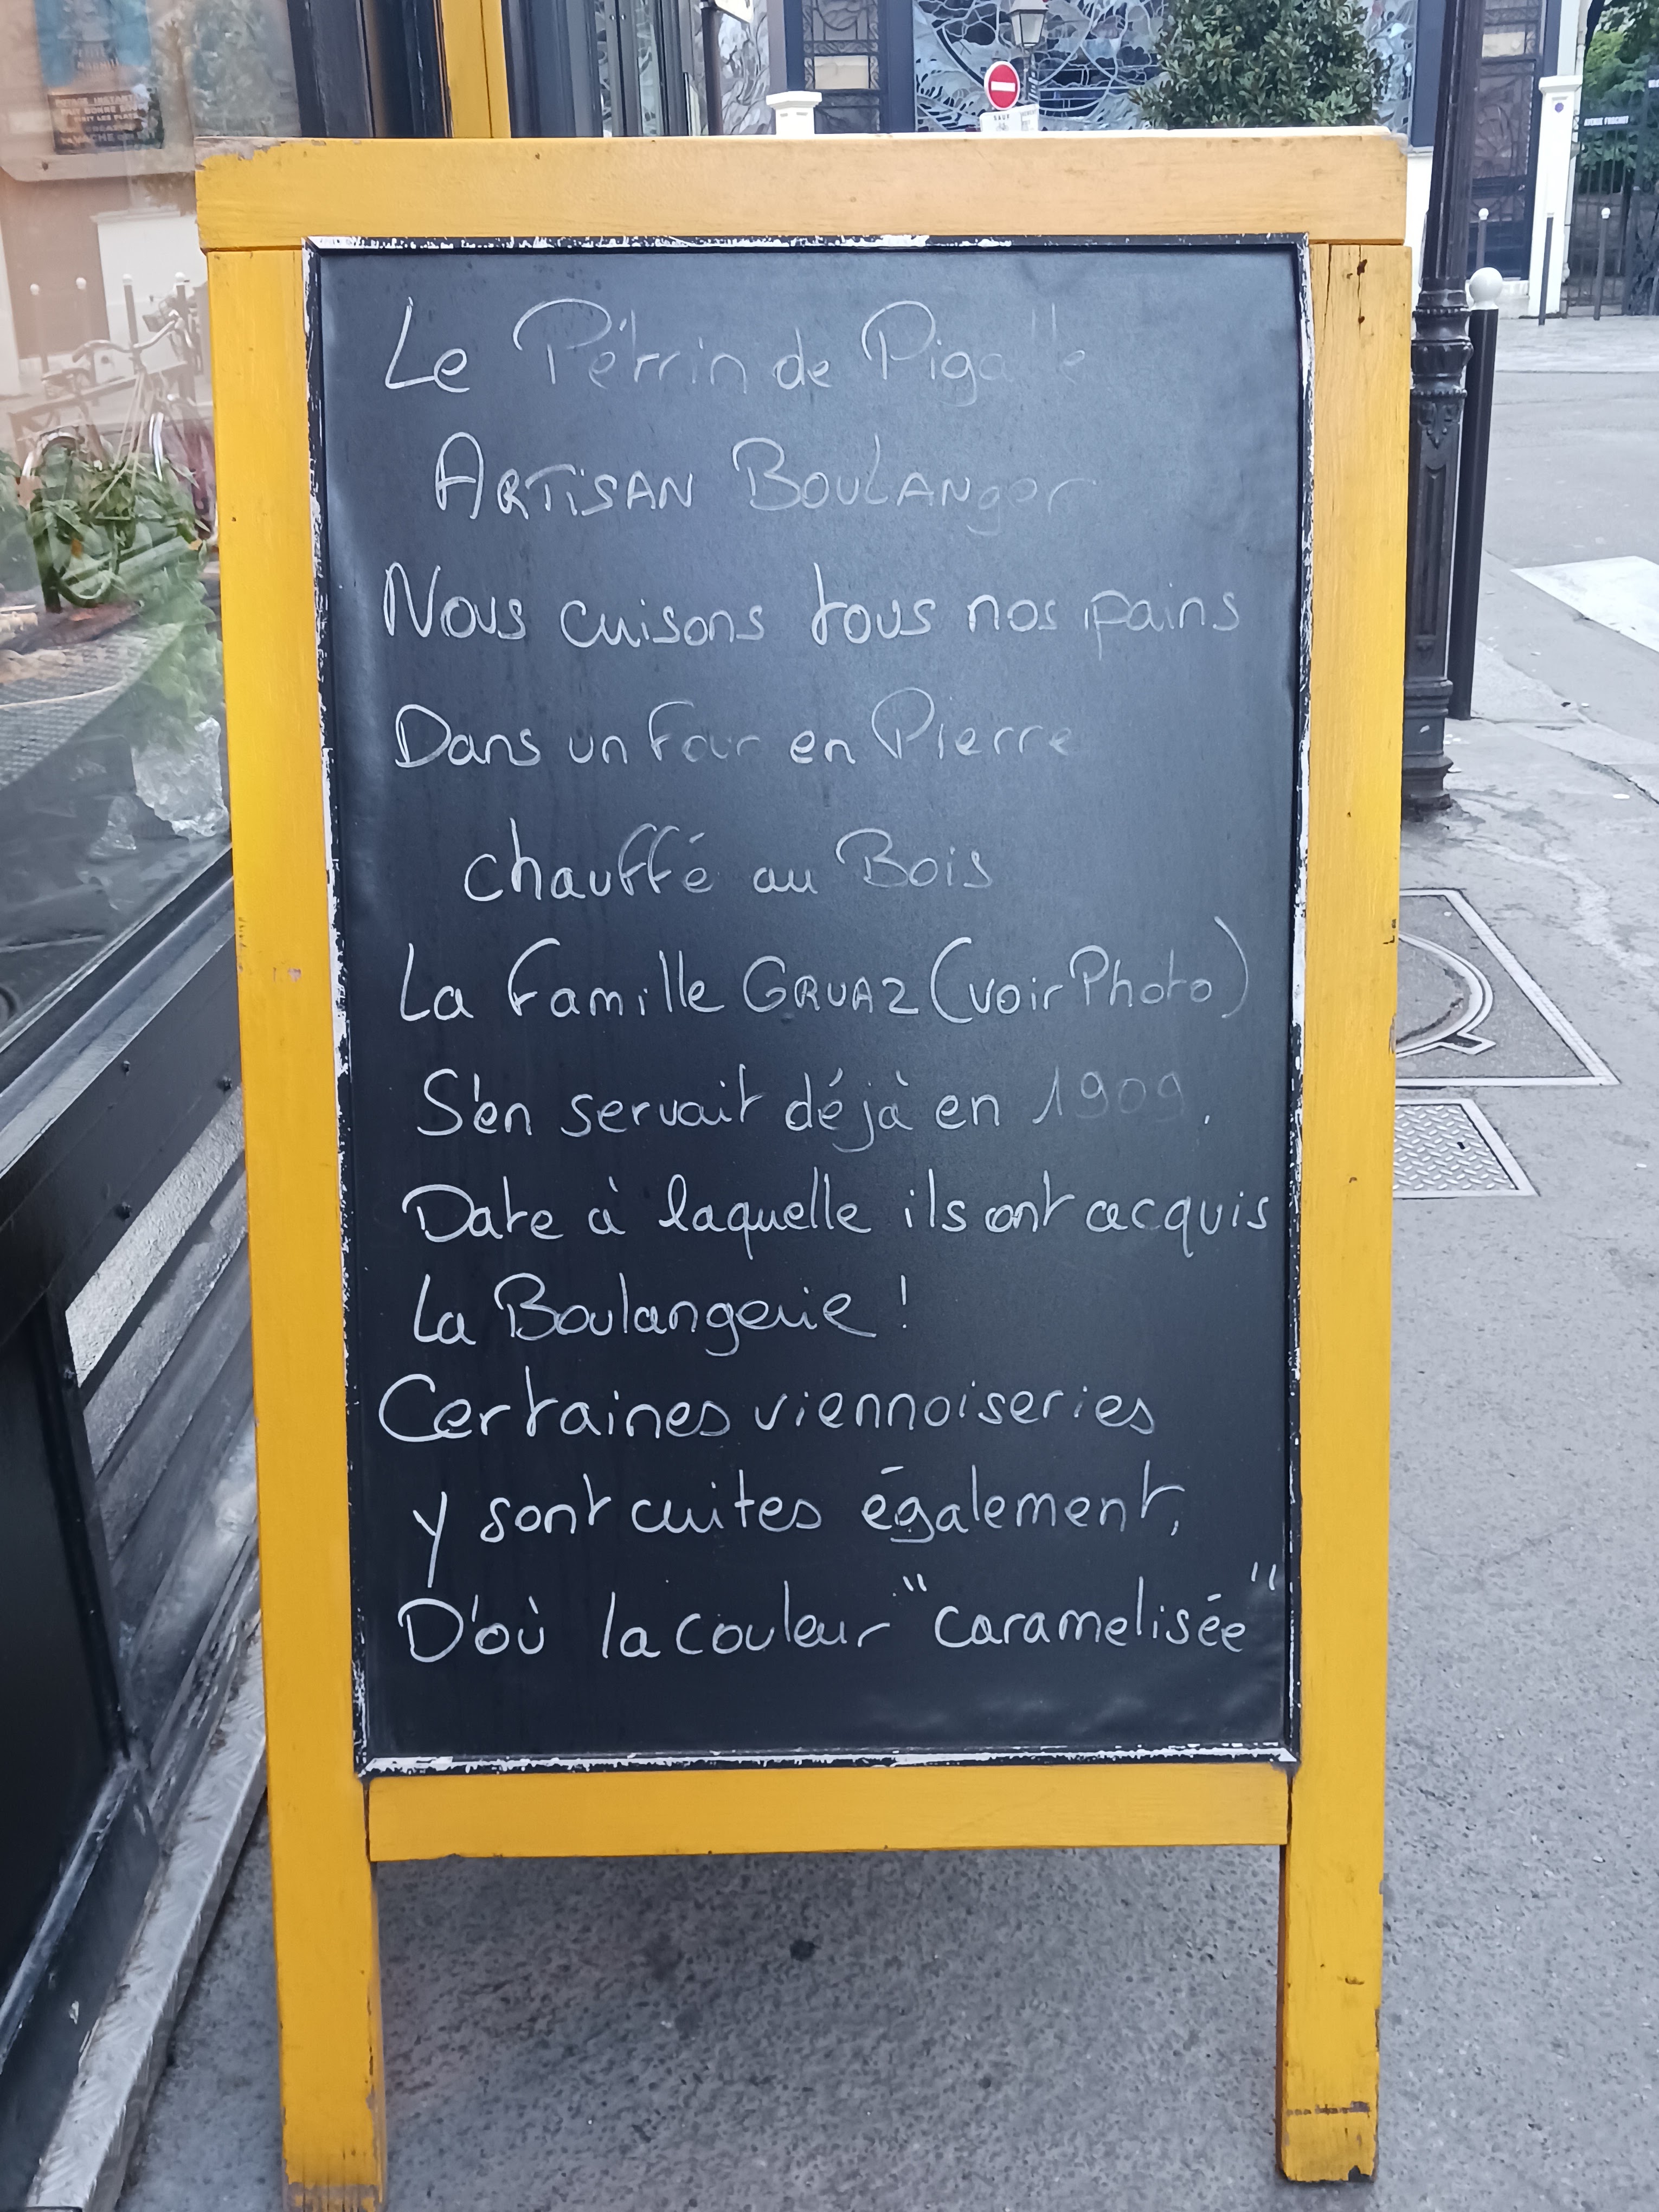 Le Pétrin de Pigalle
ARTISAN BOULANger
Nous cuisons tous nos pains
Dans un Four en Pierre
chauffé au Bois
La Famille GRUAZ (voir Photo)
S'en servait déjà en 1909.
Date à laquelle ils ont acquis
La Boulangerie !
Certaines viennoiseries
y sont cuites également,
D'où la couleur "caramelisée"
SAUF
AVENUE FROCHOT